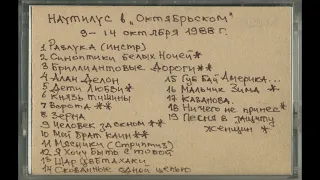 НАУТИЛУС в „ОКТЯБРЬСКОМ"
9-14 ОКТЯБРЯ 1988 г.
1 РАЗЛУКА (ИНСТР)
2 СИНОПТИКИ БЕЛЫХ НОЧЕЙ *
3 БРИЛЛИАНТОВЫЕ ДОРОГИ *
4 АЛАН ДЕЛОН
5 ДЕТИ ЛЮБВИ *
6 КНЯЗЬ ТИШИНЫ
7 ВОРОТА **
8 ЗЕРНА
9 ЧЕЛОВЕК ЗА ОКНОМ **
10 МОЙ БРАТ КАИН **
11 МЯСНИКИ (СТРИПТИЗ)
12 Я ХОЧУ БЫТЬ С ТОБОЙ
13 ШАР ЦВЕТА ХАКИ
14 СКОВАННЫЕ ОДНОЙ ЦЕПЬЮ
15 ГУД БАЙ АМЕРИКА...
16 МАЛЬЧИК ЗИМА *
17 КАЗАНОВА.
18 НИЧЕГО НЕ ПРИНЕС *
19 ПЕСНЯ В ЗАЩИТУ
ЖЕНЩИН *